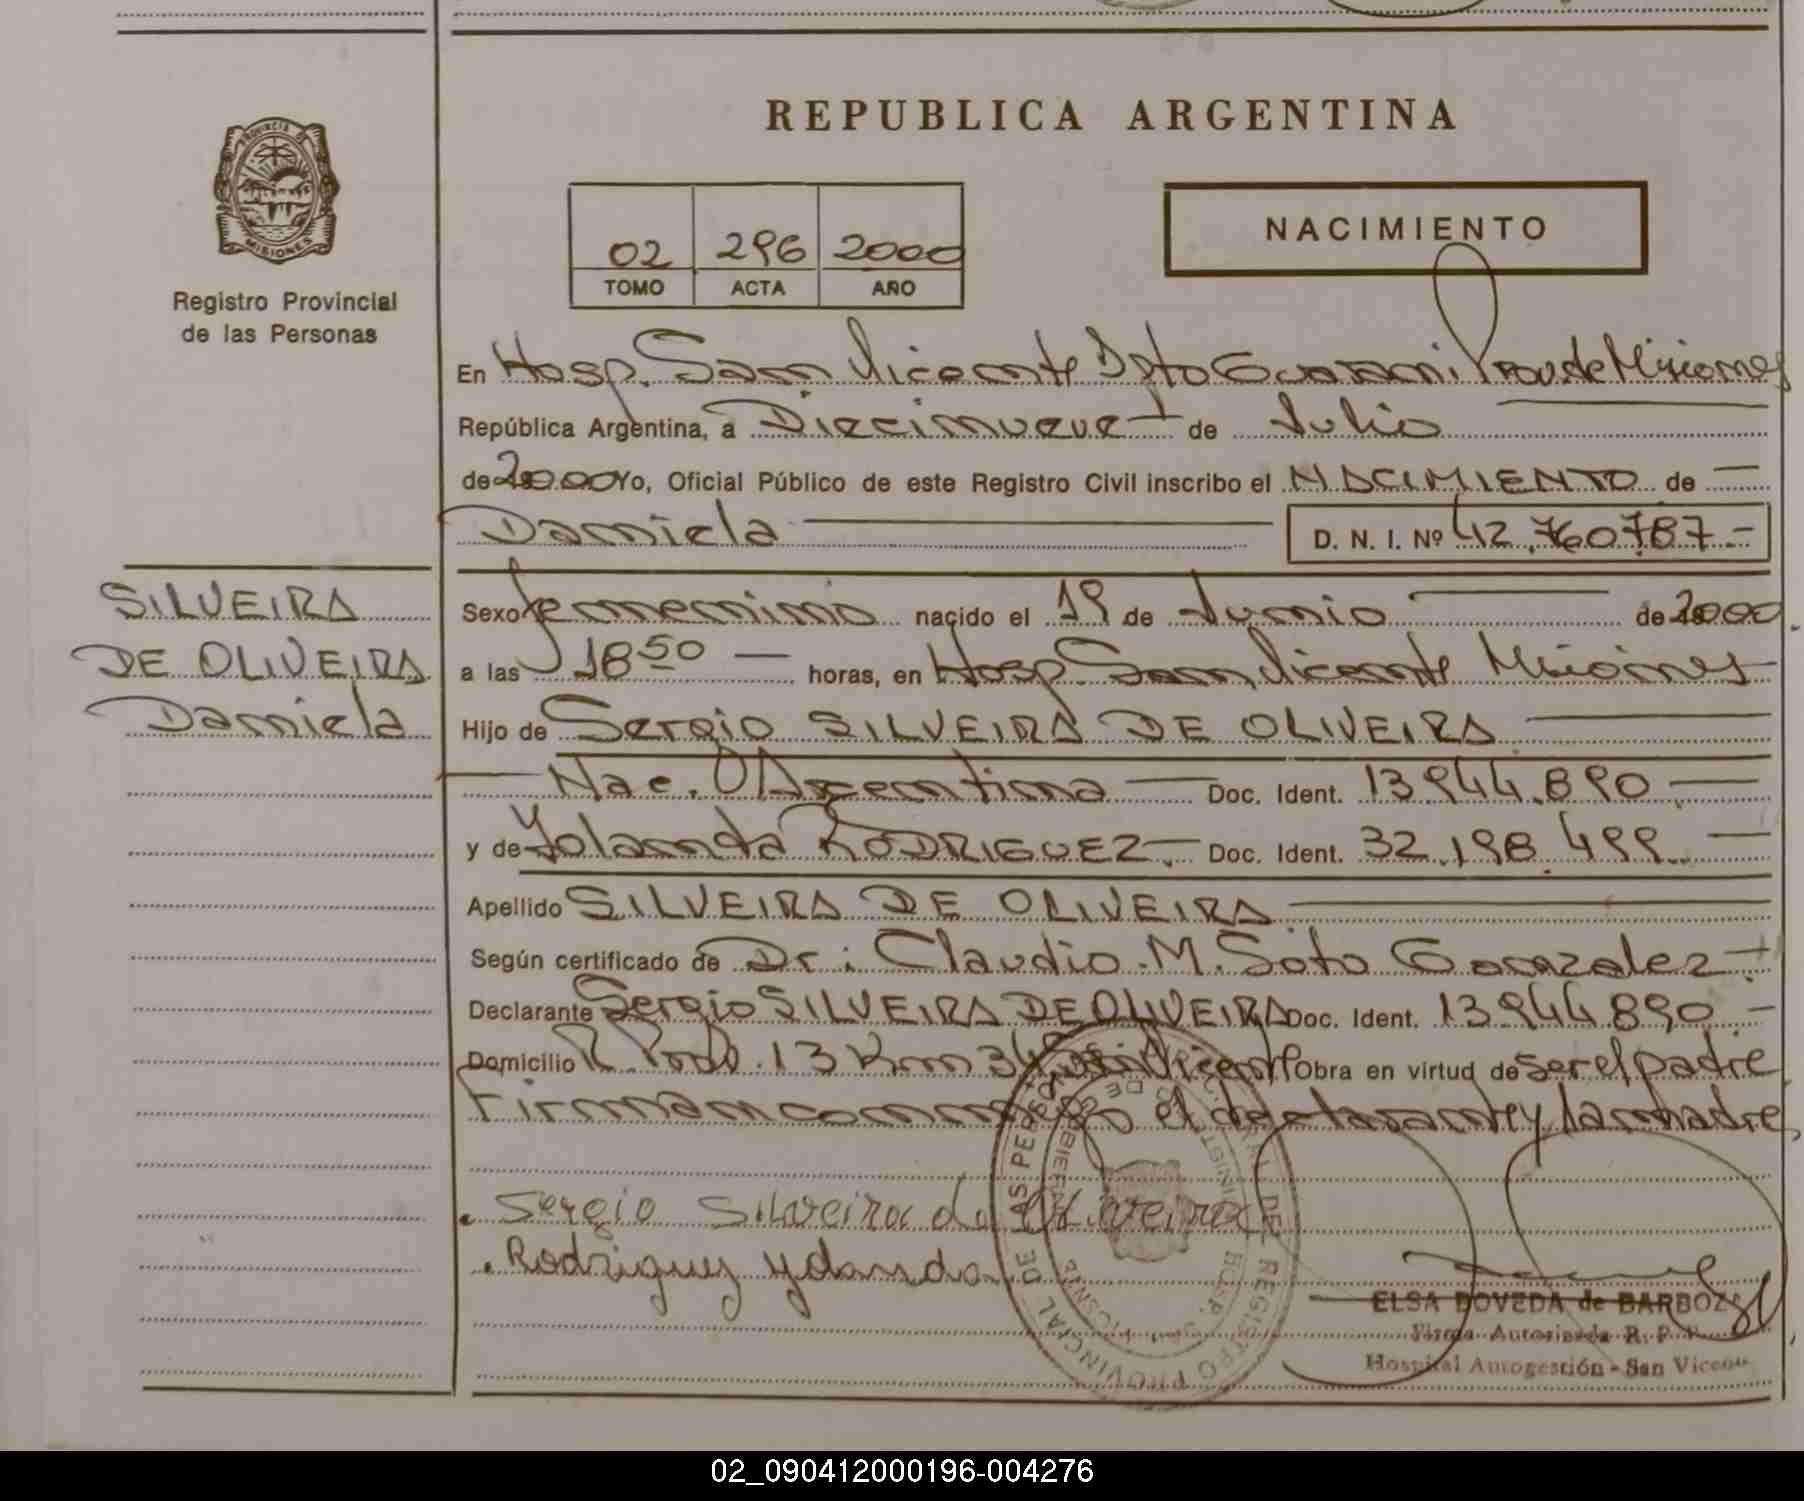 REPUBLICA ARGENTINA
PROVINCIA DE
MISIONES
Registro Provincial
de las Personas
02 296 2000
TOMO ACTA AÑO
NACIMIENTO
En Hosp. San Vicente Dpto Guarani Prov. de Misiones
República Argentina, a Diecinueve de Julio
de 2000 Yo, Oficial Público de este Registro Civil inscribo el NACIMIENTO de
Daniela D. N. I. Nº 42.760787-
SILVEIRA
DE OLIVEIRA
Daniela
Sexo femenino nacido el 19 de Junio de 2000
a las 18 50 horas, en Hosp. San Vicente Misiones
Hijo de Sergio SILVEIRA DE OLIVEIRA
Nac. Argentina Doc. Ident. 13944.890
y de Yolanda RODRIGUEZ.- Doc. Ident. 32.198.499
Apellido SILVEIRA DE OLIVEIRA
Según certificado de Dr: Claudio.M. Soto Gonzalez.-
Declarante Sergio SILVEIRA DE OLIVEIRA Doc. Ident. 13944.890.-
Domicilio R. Prov. 13 Km 34 San Vicente Obra en virtud de ser el padre
Firman conmigo el declarante y la madre
Sergio Silveira de Oliveira
Rodriguez Yolanda
REGISTRO PROVINCIAL DE LAS PERSONAS
ELSA BOVEDA de BARBOZA
Firma Autorizada R. P. P.
Hospital Autogestión - San Vicente
02_090412000196-004276